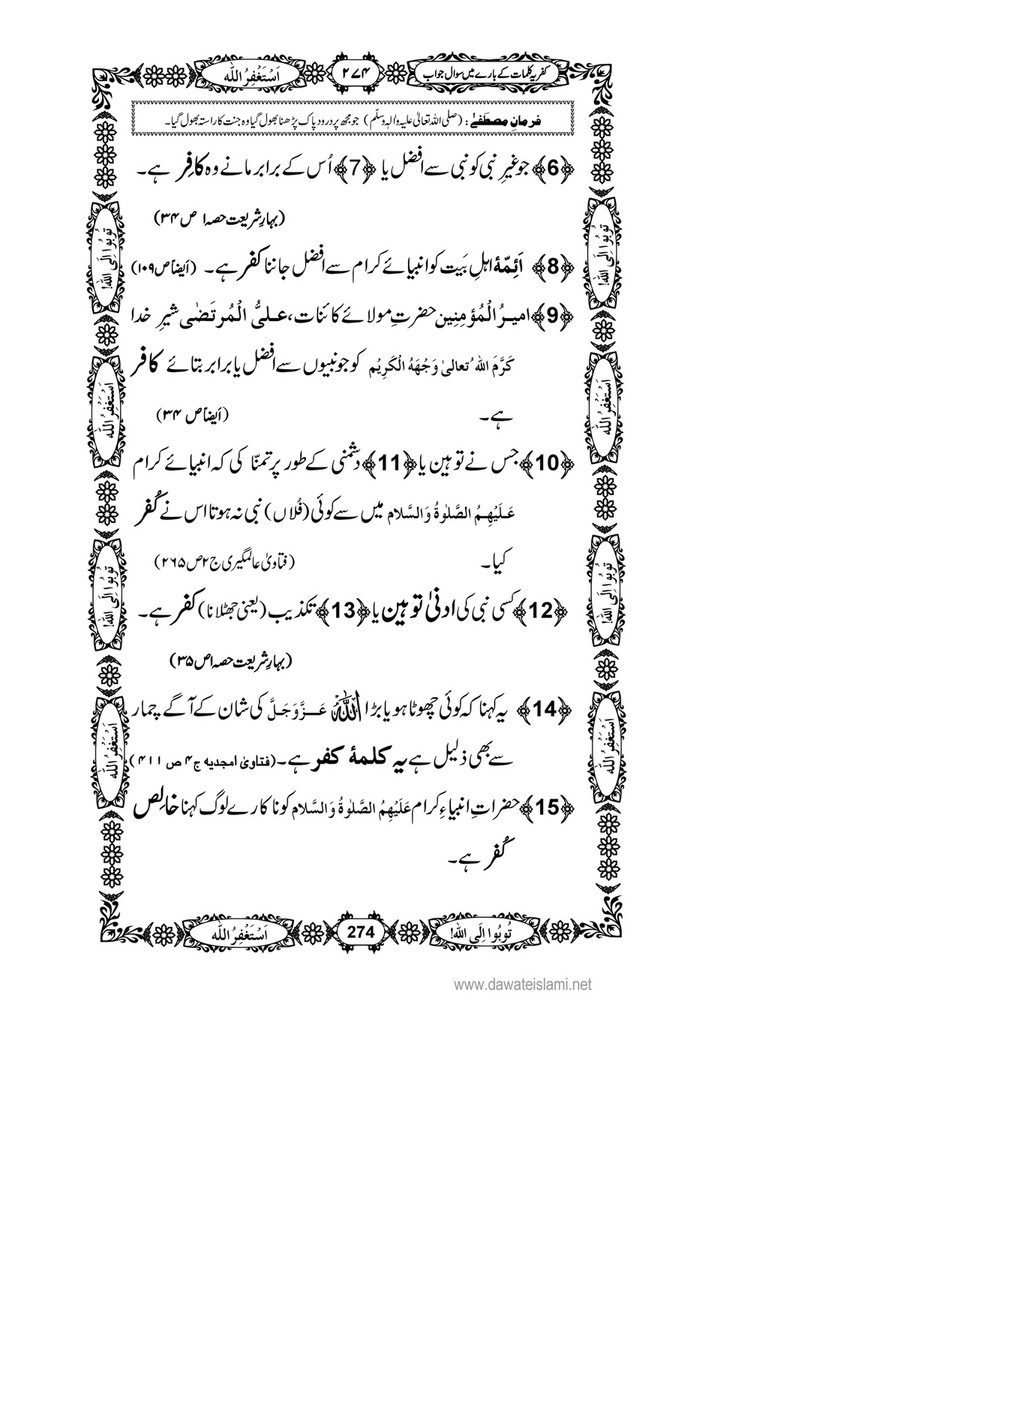 کفریہ کلمات کے بارے میں سوال جواب ۲۷۴ اَسْتَغْفِرُ اللّٰہ
فرمانِ مصطفٰے : (صلی اللہ تعالیٰ علیہ والہٖ وسلّم) جو مجھ پر درود پاک پڑھنا بھول گیا وہ جنت کا راستہ بھول گیا۔
﴿6﴾ جو غیرِ نبی کو نبی سے افضل یا ﴿7﴾ اُس کے برابر مانے وہ کافِر ہے۔
(بہارِ شریعت حصہ ۱ ص ۳۴)
﴿8﴾ اَئِمّۂ اہلِ بَیت کو انبیائے کرام سے افضل جاننا کفر ہے۔ (اَیضاً ص ۱۰۹)
﴿9﴾ امیرُ الْمُؤمِنِین حضرتِ مولائے کائنات، علیُّ الْمُرتَضٰی شیرِ خدا
کَرَّمَ اللہُ تعالیٰ وَجْہَہُ الْکَرِیْم کو جو نبیوں سے افضل یا برابر بتائے کافر
ہے۔ (اَیضاً ص ۳۴)
﴿10﴾ جس نے توہین یا ﴿11﴾ دشمنی کے طور پر تمنّا کی کہ انبیائے کرام
عَلَیْہِمُ الصَّلٰوۃُ وَالسَّلام میں سے کوئی (فُلاں) نبی نہ ہوتا اس نے کُفر
کیا۔ (فتاویٰ عالمگیری ج ۲ ص ۲۶۵)
﴿12﴾ کسی نبی کی ادنیٰ توہین یا ﴿13﴾ تکذیب (یعنی جھٹلانا) کفر ہے۔
(بہارِ شریعت حصہ ۱ ص ۳۵)
﴿14﴾ یہ کہنا کہ کوئی چھوٹا ہو یا بڑا اللّٰہ عَزَّوَجَلَّ کی شان کے آگے چمار
سے بھی ذلیل ہے یہ کلمۂ کفر ہے۔ (فتاویٰ امجدیہ ج ۴ ص ۴۱۱)
﴿15﴾ حضراتِ انبیاءِ کرام عَلَیْہِمُ الصَّلٰوۃُ وَالسَّلام کو ناکارے لوگ کہنا خالِص
کُفر ہے۔
تُوبُوا اِلَی اللّٰہ!
اَسْتَغْفِرُ اللّٰہ
تُوبُوا اِلَی اللّٰہ!
اَسْتَغْفِرُ اللّٰہ
تُوبُوا اِلَی اللّٰہ!
اَسْتَغْفِرُ اللّٰہ
تُوبُوا اِلَی اللّٰہ!
اَسْتَغْفِرُ اللّٰہ
تُوبُوا اِلَی اللّٰہ! 274 اَسْتَغْفِرُ اللّٰہ
www.dawateislami.net